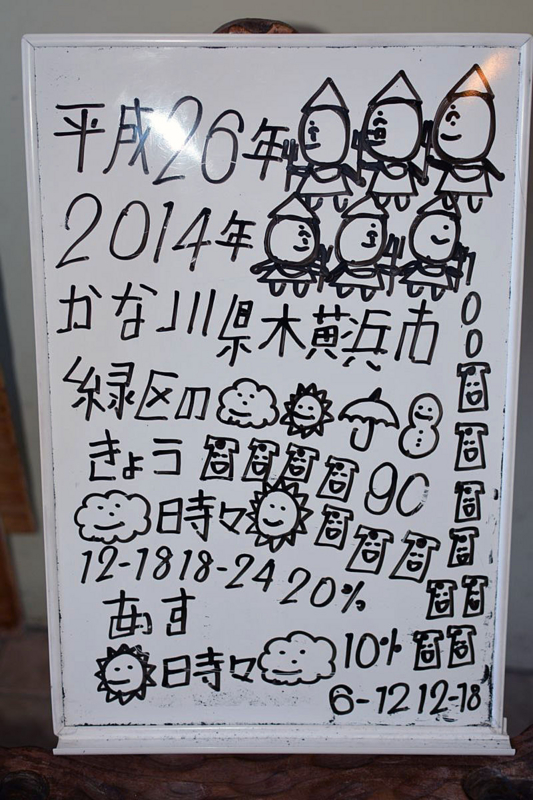 平成26年
2014年
かな川県横浜市
緑区の
きょう 90
日時々
12-18 18-24 20%
あす
日時々 10%
6-12 12-18
00